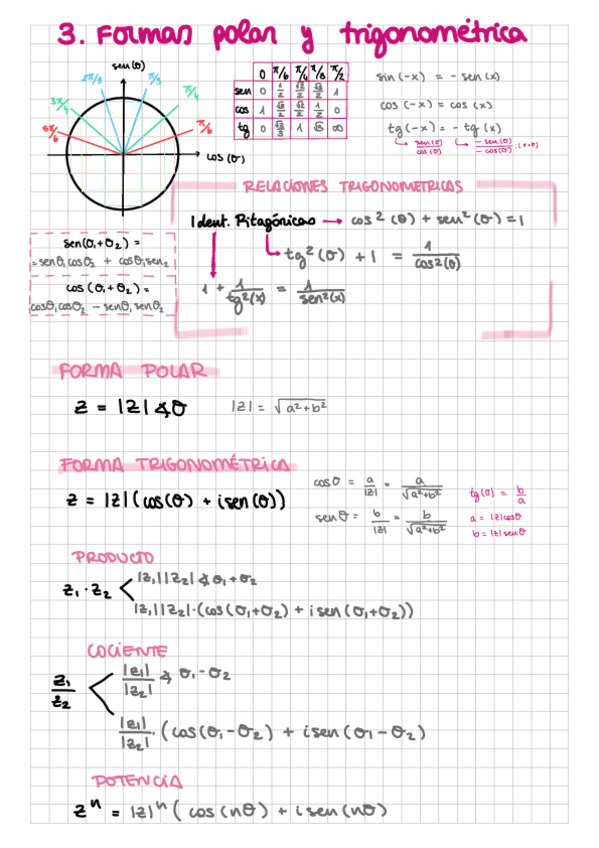 3. Formas polar y trigonométrica
sen(θ)
2π/3 π/3
3π/4 π/4
5π/6 π/6
cos(θ)
0 π/6 π/4 π/3 π/2
sen 0 1/2 √2/2 √3/2 1
cos 1 √3/2 √2/2 1/2 0
tg 0 √3/3 1 √3 ∞
sin(-x) = - sen(x)
cos(-x) = cos(x)
tg(-x) = - tg(x)
sen(θ)/cos(θ) -sen(θ)/-cos(θ)
RELACIONES TRIGONOMETRICAS
Ident. Pitagóricas → cos²(θ) + sen²(θ) = 1
tg²(θ) + 1 = 1/cos²(θ)
1 + 1/tg²(x) = 1/sen²(x)
sen(θ₁+θ₂) =
= senθ₁cosθ₂ + cosθ₁sen₂
cos(θ₁+θ₂) =
cosθ₁cosθ₂ - senθ₁senθ₂
FORMA POLAR
z = |z|∢θ |z| = √a²+b²
FORMA TRIGONOMÉTRICA
z = |z|(cos(θ) + isen(θ))
cosθ = a/|z| = a/√a²+b²
senθ = b/|z| = b/√a²+b²
tg(θ) = b/a
a = |z|cosθ
b = |z|senθ
PRODUCTO
z₁·z₂ < |z₁||z₂|∢θ₁+θ₂
|z₁||z₂|·(cos(θ₁+θ₂) + isen(θ₁+θ₂))
COCIENTE
z₁/z₂ < |z₁|/|z₂| ∢ θ₁-θ₂
|z₁|/|z₂|·(cos(θ₁-θ₂) + isen(θ₁-θ₂))
POTENCIA
zⁿ = |z|ⁿ(cos(nθ) + isen(nθ)